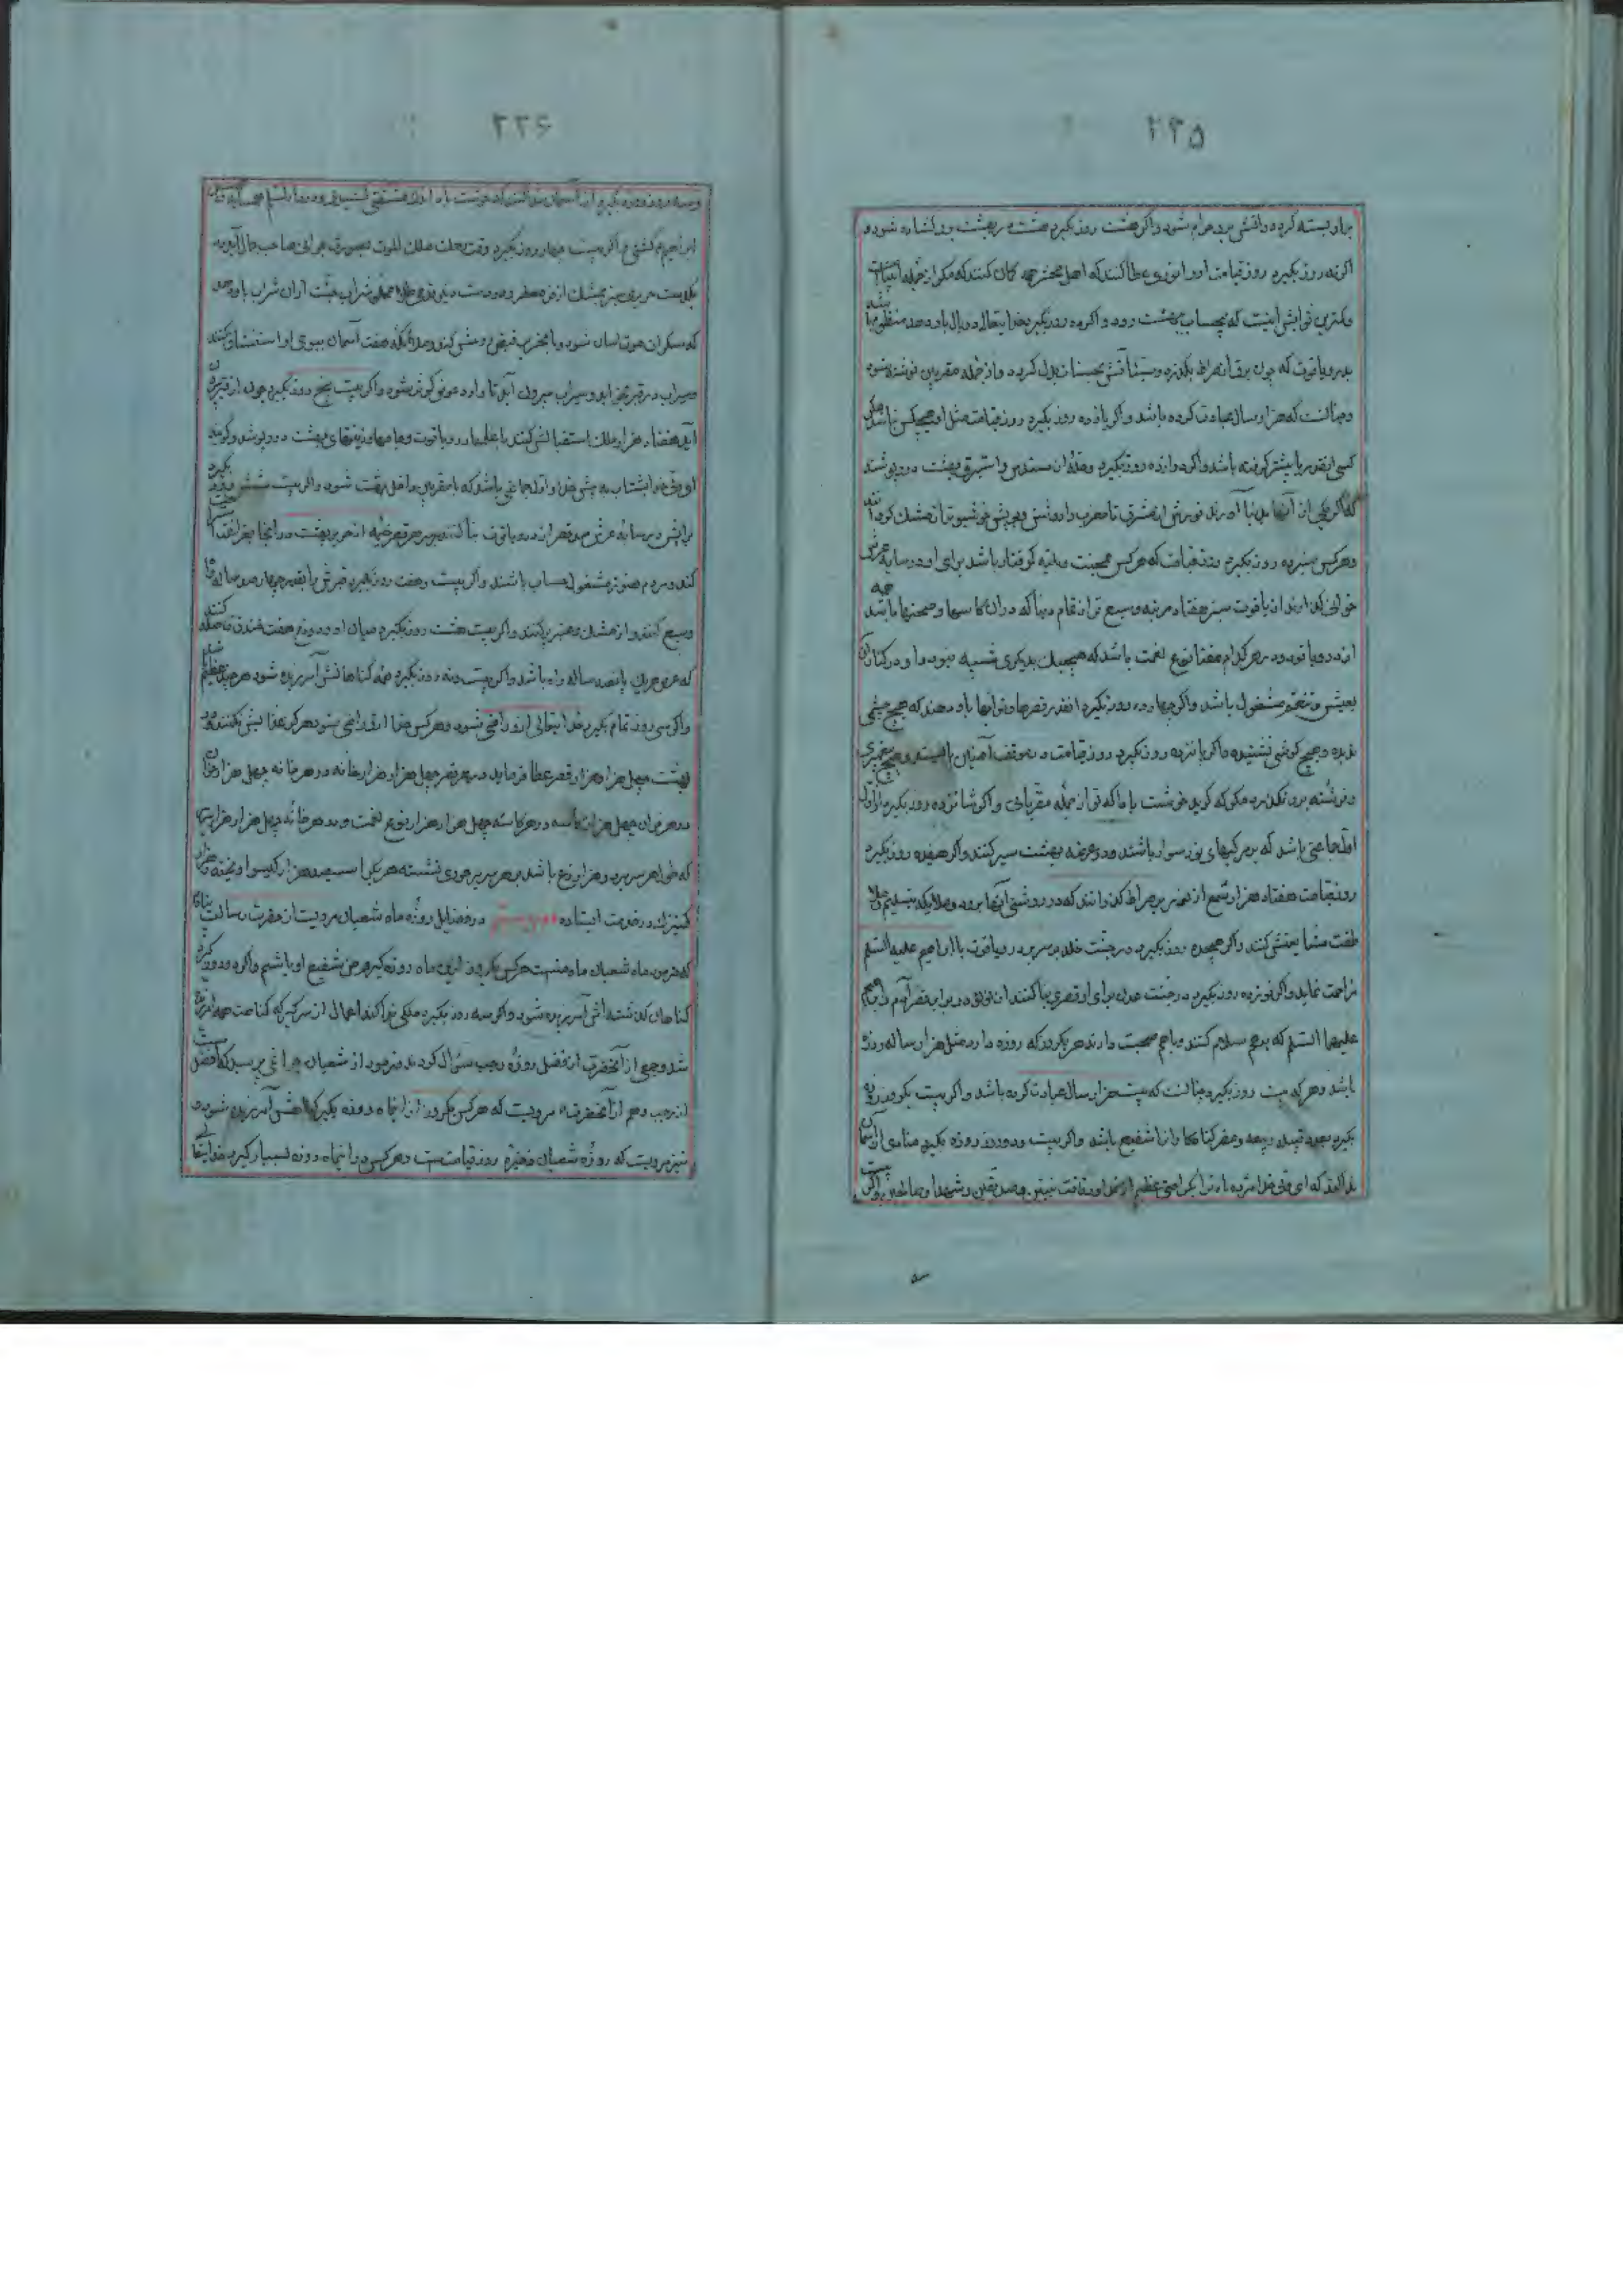 ۲۳۵
براو بسته کرده و آتش برو حرام شود و اگر هشت روز بگیرد هشت در بهشت برو گشاده شود و
اگر نه روز بگیرد روز قیامت او را نوری عطا کنند که اهل محشر همه گمان کنند که مگر از جمله انبیاست
و کمترین ثوابش اینست که بیحساب ببهشت رود و اگر ده روز بگیرد خدایتعالی دو بال باو دهد منظوم
بدر و یاقوت که چون برق از صراط بگذرد و سیئاتش بحسنات بدل گردد و از جمله مقربان نوشته شود
و چنانست که هزار سال عبادت کرده باشد و اگر یازده روز بگیرد روز قیامت مثل او هیچکس نباشد مگر
کسی اینقدر یا بیشتر گرفته باشد و اگر دوازده روز بگیرد دو حله از سندس و استبرق بهشت درو پوشند
که اگر یکی از آنها بدنیا آورند نورش از مشرق تا مغرب را روشن و بویش خوشبوتر از مشک کرداند
و هرکس سیزده روز بگیرد روز قیامت که هرکس بمحنت و بلیه گرفتار باشد برای او در سایه عرش
خوانی بگذارند از یاقوت سبز هفتاد مرتبه وسیع تر از تمام دنیا که دران کاسها و صحنها باشد همه
از در و یاقوت و در هر کدام هفتاد نوع نعمت باشد که هیچیک بدیگری شبیه نبود و او در کنار آن
بعیش و تنعم مشغول باشد و اگر چهارده روز بگیرد انقدر قصرها و ثوابها باو دهند که هیچ چشمی
ندیده و هیچ گوشی نشنیده و اگر پانزده روز بگیرد روز قیامت در موقف آمنان بایستد و هیچ پیغمبری
و فرشته برو نگذرد مگر که گوید خوشت باد که تو از جمله مقربانی و اگر شانزده روز بگیرد از اول
جماعتی باشد که بر مرکبهای نور سوار باشند و در عرصه بهشت سیر کنند و اگر هفده روز بگیرد
روز قیامت هفتاد هزار شمع از نور بر صراط گذرانند که در روشنی آنها برود و ملائکه بتسلیم و
مشایعتش کنند و اگر هیجده روز بگیرد در جنت خلد بر سریر در و یاقوت با ابراهیم علیه السلم
مزاحمت نماید و اگر نوزده روز بگیرد در جنت عدن برای او قصری بنا کنند از لؤلؤ در برابر قصر آدم و ابراهیم
علیهما السلم که برهم سلام کنند و باهم صحبت دارند هر یکروز که روزه دارد مثل هزار ساله روزه
باشد و هر که بیست روز بگیرد چنانست که بیست هزار سال عبادت کرده باشد و اگر بیست یکروز روزه
بگیرد بعدد قبیله ربیعه و مضر گناهکاران را شفیع باشد و اگر بیست و دو روز روزه بگیرد منادی از آسمان
ندا کند که ای ولی خدا مژده باد ترا بکرامتی عظیم از خدا و رفاقت نبیین و صدیقین و شهدا و صالحین و اگر بیست
۲۳۶
و سه روز روزه بگیرد از آسمان ندا کنند که خوشت باد
ابراهیم گشتی و اگر بیست چهار روز بگیرد وقت رحلت ملک الموت بصورت جوانی صاحب جمال آید
بلباس حریر سبز و بمشک ازفر معطر و در دست او قدح طلا مملو شراب جنت ازان شراب باو دهد
که سکران موت آسان شود و بحریر قبض روحش کند و ملائکه هفت آسمان ببوی او استنشاق کنند
و سیراب در قبر بخوابد و سیراب بیرون آید تا وارد حوض کوثر شود و اگر بیست پنج روز بگیرد چون از قبر بیرون
آید هفتاد هزار ملک استقبالش کنند با علمها در و یاقوت و جامها و زینتهای بهشت درو پوشند و گویند
ای ولی خدا بشتاب به پیش خدا و اول جماعتی باشد که با مقربان داخل بهشت شود و اگر بیست شش روز بگیرد
برایش در سایه عرش صد قصر از در و یاقوت بنا کنند بر سر هر قصر خیمه از حریر بهشت در آنجا بفراغت
کند و مردم هنوز مشغول حساب باشند و اگر بیست و هفت روز بگیرد قبرش را بقدر چهار صد ساله راه
وسیع کنند و از مشک و عنبر پر کنند و اگر بیست هشت روز بگیرد میان او و دوزخ هفت خندق فاصله کنند
که عرض هریک پانصد ساله راه باشد و اگر بیست و نه روز بگیرد همه گناهانش آمرزیده شود هر چند عظیم باشد
و اگر سی روز تمام بگیرد خدایتعالی ازو راضی شود و هرکس خدا ازو راضی شود هرگز عذابش نکند و در
بهشت چهل هزار هزار قصر عطا فرماید در هر قصر چهل هزار هزار خانه در هر خانه چهل هزار خوان
در هر خوان چهل هزار کاسه در هر کاسه چهل هزار هزار نوع نعمت و در هر خانه چهل هزار هزار سریر
که طول هر سریر دو هزار ذرع باشد بر هر سریر حوری نشسته هر یکرا سیصد هزار گیسو آویخته و هزار
کنیزک در خدمت ایستاده در فضایل روزه ماه شعبان مرویست از حضرت رسالت پناه
که فرمود ماه شعبان ماه منست هرکس یکروز ازین ماه روزه گیرد من شفیع او باشم و اگر دو روز گیرد
گناهان گذشته اش آمرزیده شود و اگر سه روز بگیرد ملکی ندا کند اعمال از سر گیر که گناهت همه آمرزیده
شد و جمعی از آنحضرت از فضل روزه رجب سؤال کردند فرمود از شعبان چرا نمی پرسید که افضل است
از رجب و هم از آنحضرت مرویست که هرکس یکروز ازینماه روزه بگیرد گناهش آمرزیده شود و
نیز مرویست که روزه شعبان ذخیره روز قیامتست و هرکس درینماه روزه بسیار گیرد خدایتعالی